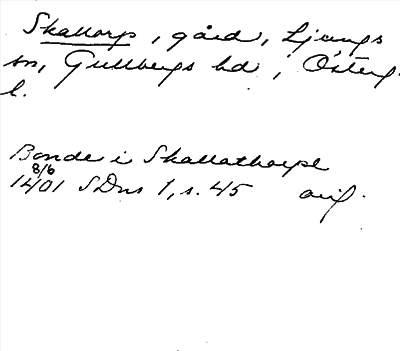 Skattorp, gård, Ljungs
sn, Gullbergs hd, Österg.
l.
Bonde i Skallathorpe
8/6
1401 SDns 1, s. 45 orig.